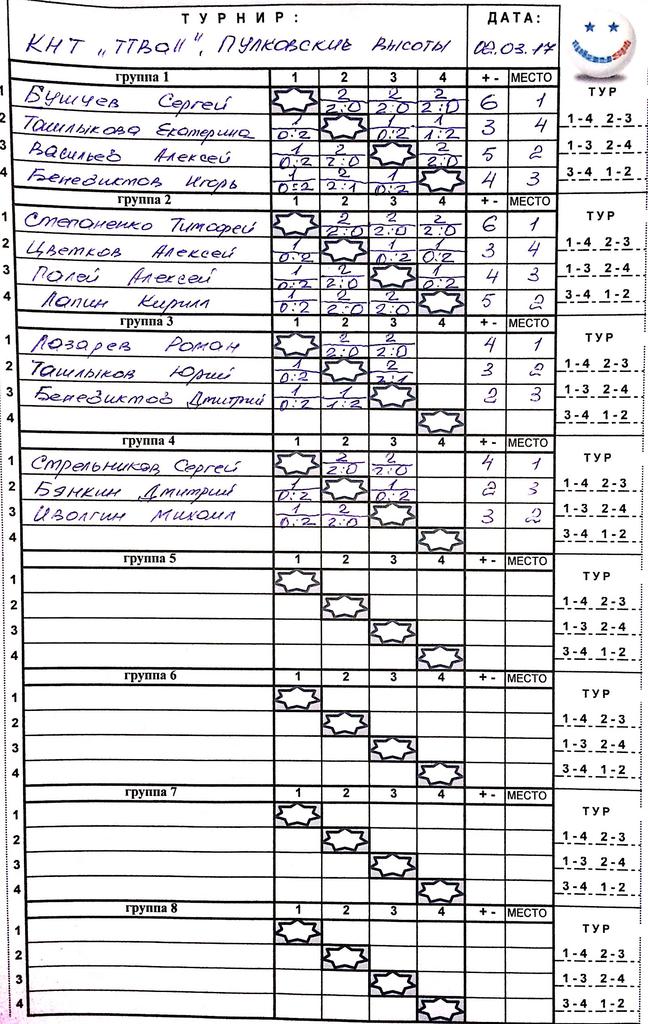 ТУРНИР: ДАТА:
КНТ „ТТВа", ПУЛКОВСКИЕ ВЫСОТЫ 02.03.17
группа 1 1 2 3 4 + - МЕСТО ТУР
1 Бушуев Сергей 2 2:0 2 2:0 2 2:0 6 1
2 Ташлыкова Екатерина 1 0:2 1 0:2 1 1:2 3 4 1-4 2-3
3 Васильев Алексей 1 0:2 2 2:0 2 2:0 5 2 1-3 2-4
4 Бенедиктов Игорь 1 0:2 2 2:1 1 0:2 4 3 3-4 1-2
группа 2 1 2 3 4 + - МЕСТО ТУР
1 Степаненко Тимофей 2 2:0 2 2:0 2 2:0 6 1
2 Цветков Алексей 1 0:2 1 0:2 1 0:2 3 4 1-4 2-3
3 Полей Алексей 1 0:2 2 2:0 1 0:2 4 3 1-3 2-4
4 Лапин Кирилл 1 0:2 2 2:0 2 2:0 5 2 3-4 1-2
группа 3 1 2 3 4 + - МЕСТО ТУР
1 Лазарев Роман 2 2:0 2 2:0 4 1
2 Ташлыков Юрий 1 0:2 2 2:1 3 2 1-4 2-3
3 Бенедиктов Дмитрий 1 0:2 1 1:2 2 3 1-3 2-4
4 3-4 1-2
группа 4 1 2 3 4 + - МЕСТО ТУР
1 Стрельников Сергей 2 2:0 2 2:0 4 1
2 Бянкин Дмитрий 1 0:2 1 0:2 2 3 1-4 2-3
3 Иволгин Михаил 1 0:2 2 2:0 3 2 1-3 2-4
4 3-4 1-2
группа 5 1 2 3 4 + - МЕСТО ТУР
1
2 1-4 2-3
3 1-3 2-4
4 3-4 1-2
группа 6 1 2 3 4 + - МЕСТО ТУР
1
2 1-4 2-3
3 1-3 2-4
4 3-4 1-2
группа 7 1 2 3 4 + - МЕСТО ТУР
1
2 1-4 2-3
3 1-3 2-4
4 3-4 1-2
группа 8 1 2 3 4 + - МЕСТО ТУР
1
2 1-4 2-3
3 1-3 2-4
4 3-4 1-2